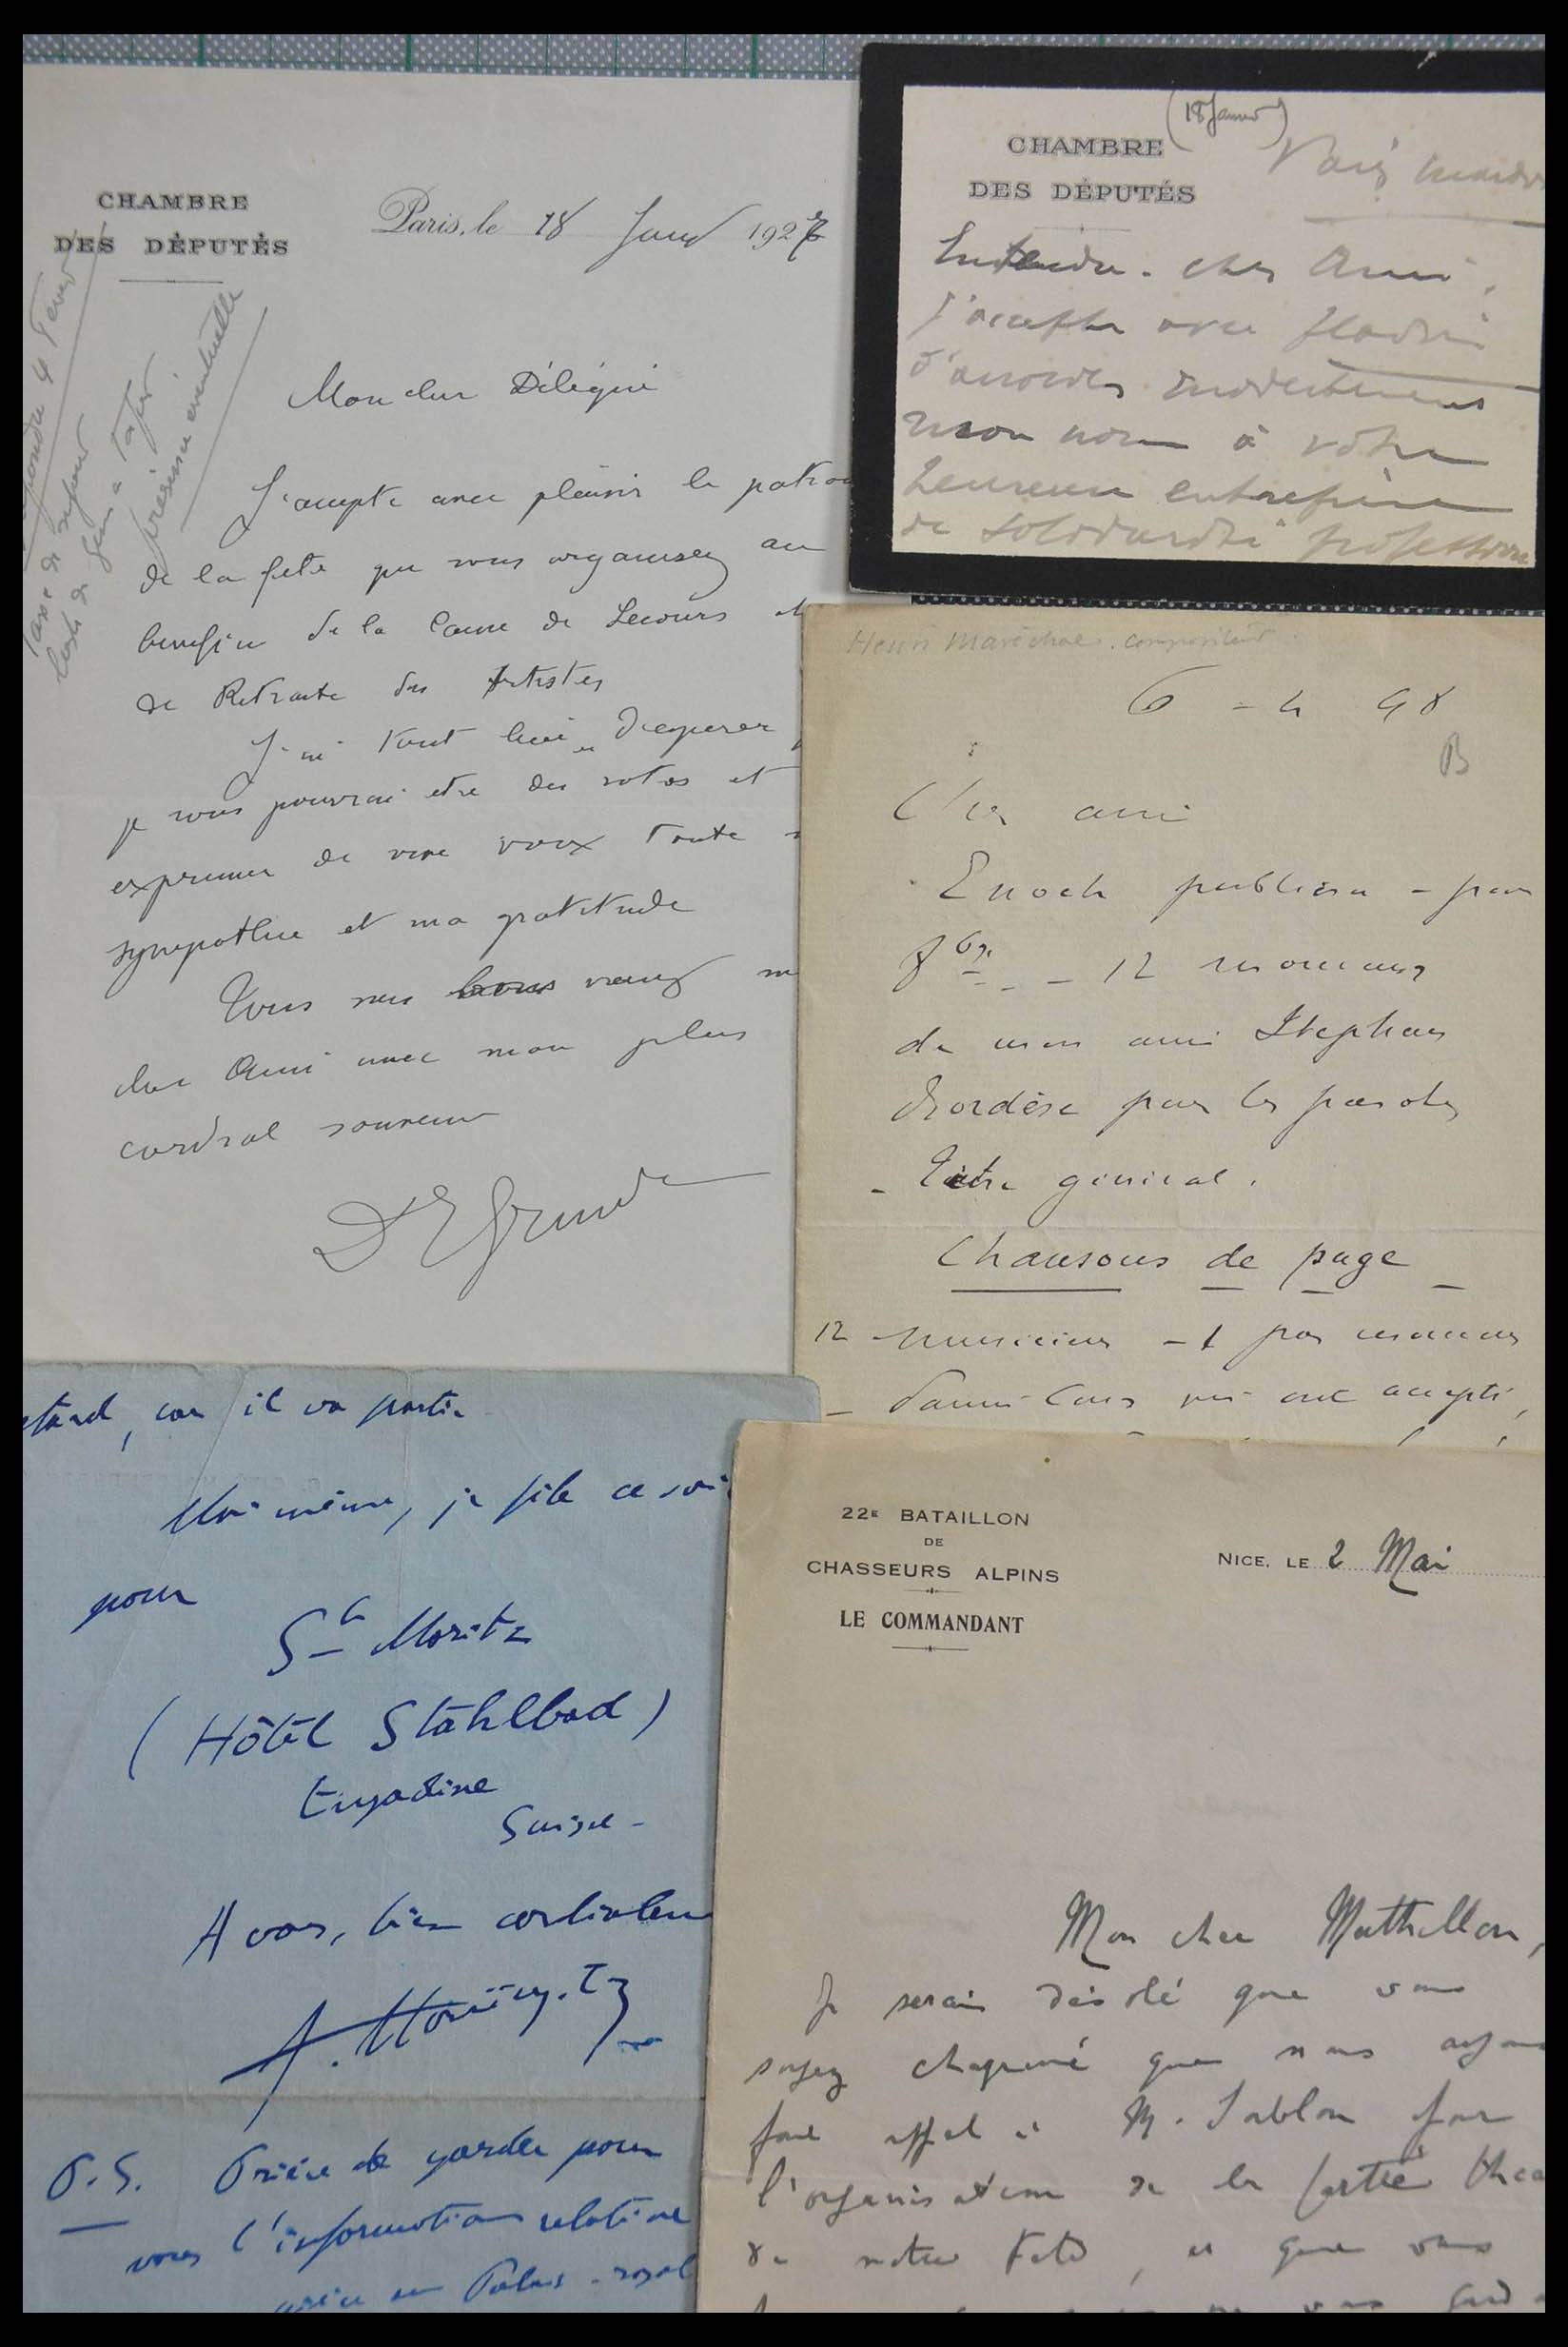 CHAMBRE
DES DÉPUTÉS
Paris, le 18 Janv 1927
présence éventuelle
Mon cher Délégué
J'accepte avec plaisir le patron
de la fete que vous organisez au
benefice de la Caisse de Secours et
de Retraite des Artistes
J'ai tout lieu d'esperer
je vous pourrai etre des votres et
exprimer de vive voix toute
sympathie et ma gratitude
Tous mes bons vœux m
cher Ami avec mon plus
cordial souvenir
(18 Janvier)
CHAMBRE
DES DÉPUTÉS
Paris
Entendu. cher Ami,
J'accepte avec plaisir
d'associer modestement
mon nom à votre
heureuse entreprise
de solidarité professionn
Henri Maréchal. compositeur
6 - 4 98
B
Cher ami
Enoch publiera - pour
8bre - 12 morceaux
de mon ami Stephan
Bordèse pour les paroles
- Titre général.
Chansons de page -
12 musiciens - 1 par morceau
- Parmi ceux qui ont accepté,
tard, car il va partir
Moi-même, je file ce soi
pour
St Moritz
(Hôtel Stahlbad)
Engadine
Suisse -
A vous, bien cordialem
P.S. Prière de garder pour
vous l'information relative
au Palais-royal
22E BATAILLON
DE
CHASSEURS ALPINS
LE COMMANDANT
NICE, LE 2 Mai
Mon cher Mathillon,
Je serais désolé que vous
soyez chagriné que nous ayons
fait appel à M. Sablon pour
l'organisation de la partie théa
de notre Fete, et que vous